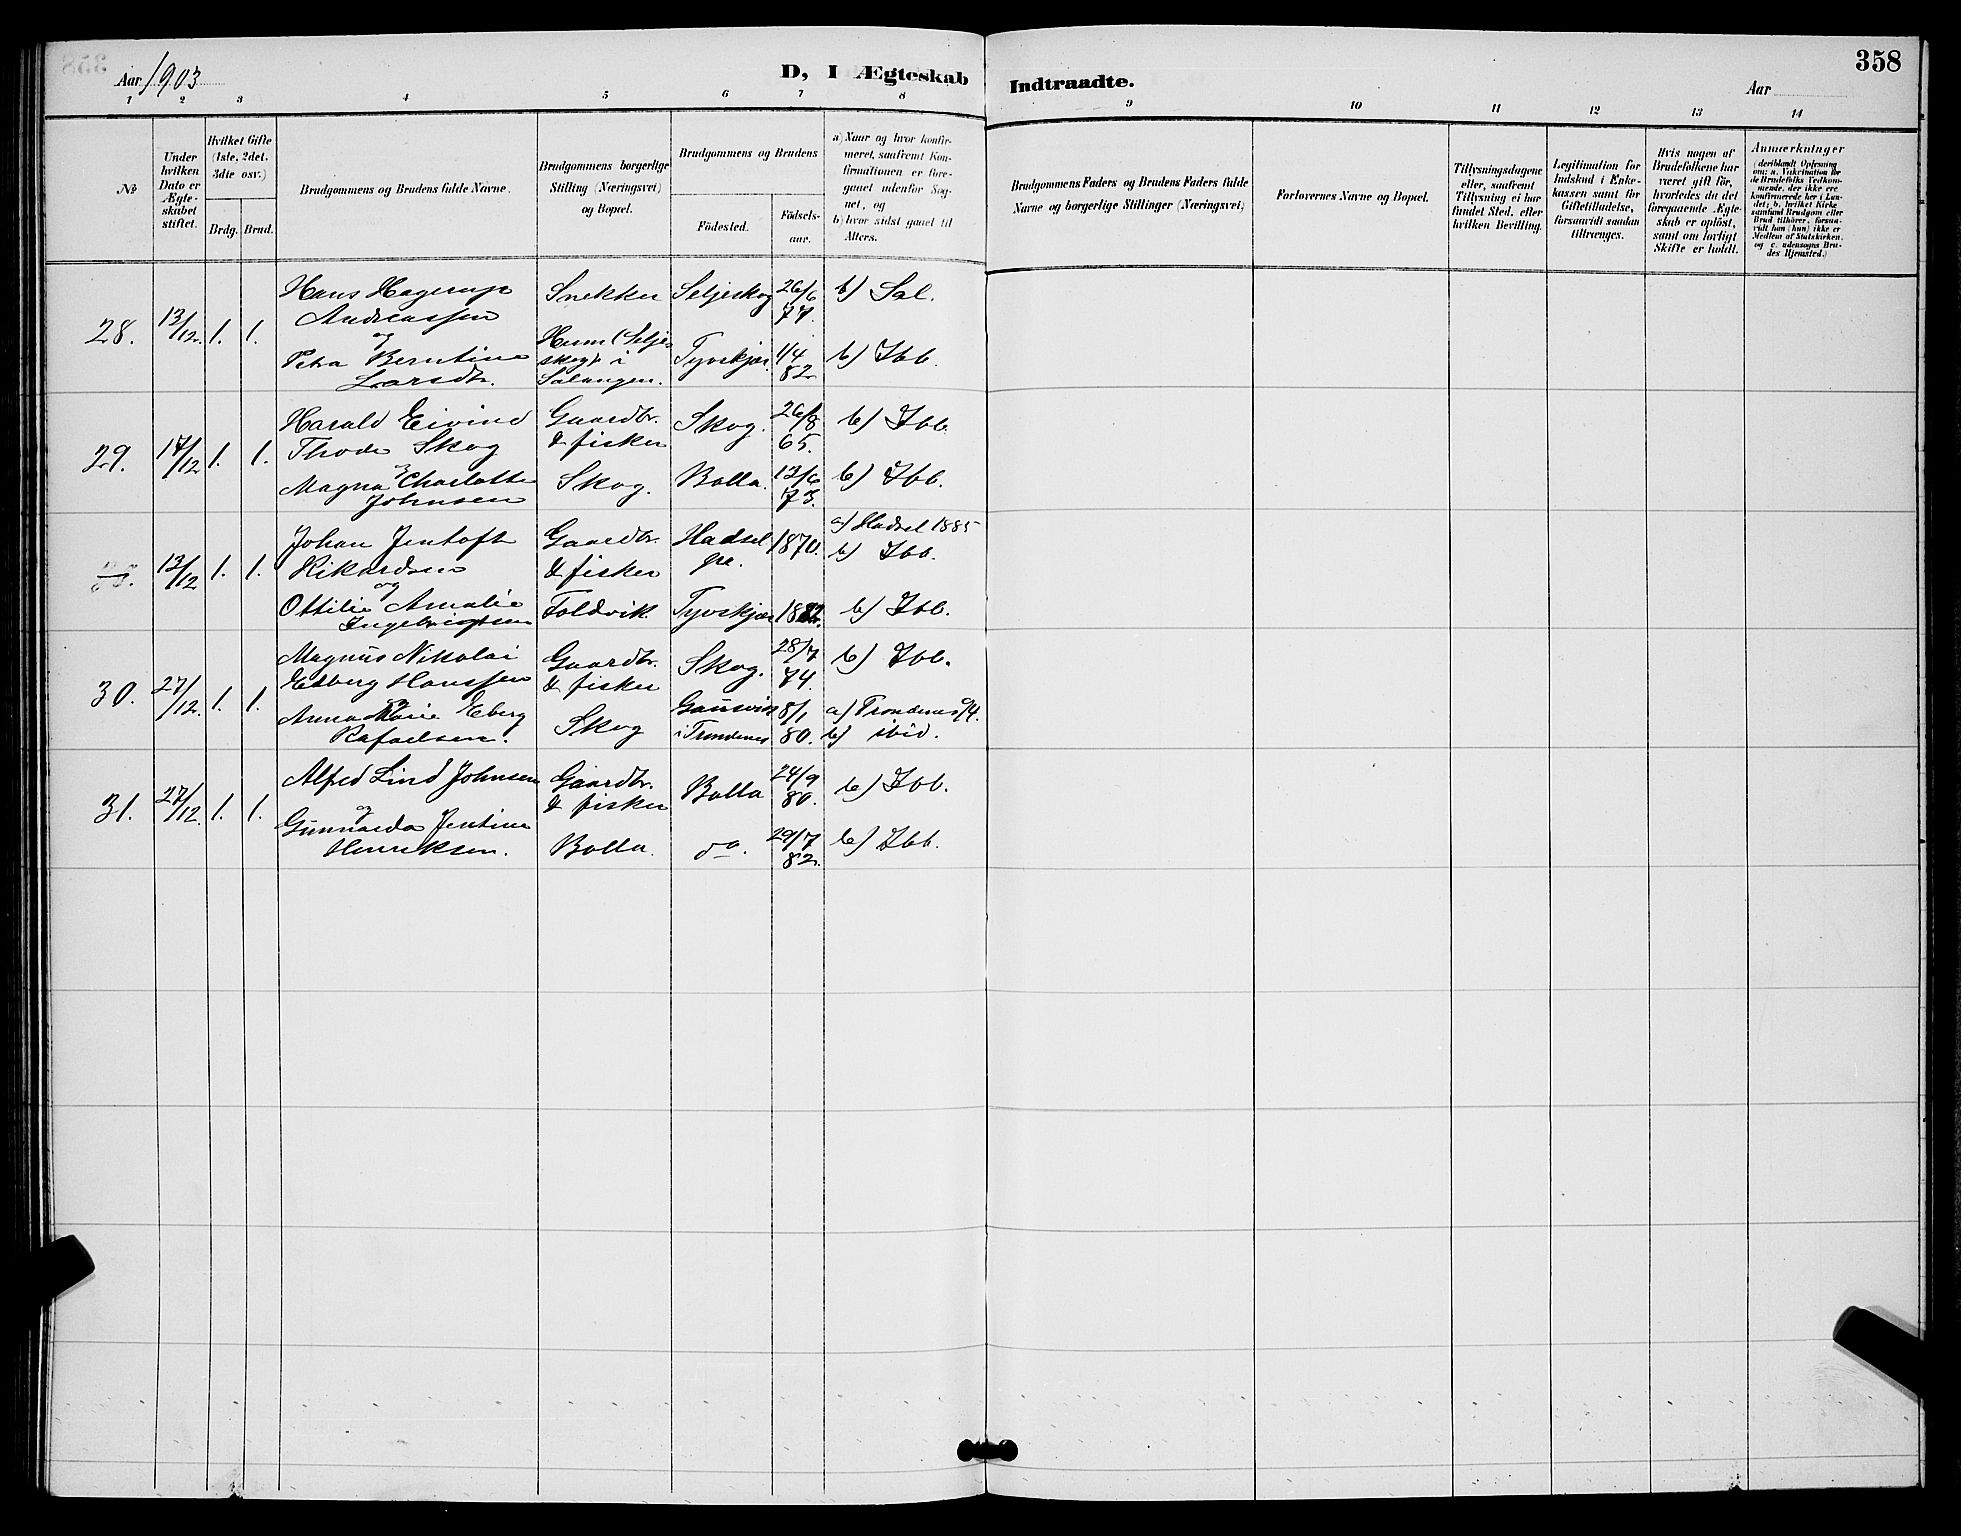 358
Aar 1903
D, I Ægteskab
Indtraadte.
Aar
1 2 3 4 5 6 7 8
9 10 11 12 13 14
No
Under hvilken Dato er Ægteskabet stiftet.
Hvilket Gifte (1ste, 2det, 3die osv.)
Brdg. Brud.
Brudgommens og Brudens fulde Navne.
Brudgommens borgerlige Stilling (Næringsvei) og Bopæl.
Brudgommens og Brudens
Födested.
Födsels-aar.
a) Naar og hvor konfir-
meret, saafremt Kon-
firmationen er fore-
gaaet udenfor Sog-
net, og
b) hvor sidst gaaet til
Alters.
Brudgommens Faders og Brudens Faders fulde
Navne og borgerlige Stillinger (Næringsvei)
Forlovernes Navne og Bopæl.
Tillysningsdagene
eller, saafremt
Tillysning ei har
fundet Sted, efter
hvilken Bevilling.
Legitimation for
Indskud i Enke-
kassen samt for
Giftetilladelse,
forsaavidt saadan
tiltrænges.
Hvis nogen af
Brudefolkene har
været gift för,
hvorledes da det
foregaaende Ægte-
skab er oplöst,
samt om lovligt
Skifte er holdt.
Anmærkninger
(deriblandt Oplysning
om: a. Vakcination for
de Brudefolks Vedkom-
mende, der ikke ere
konfirmerede her i Lan-
det; b. hvilket Kirke
samfund Brudgom eller
Brud tilhörer, forsaa-
vidt han (hun) ikke er
Medlem af Statskirken,
og c. udensogns Bru-
des Hjemsted.)
28. 13/12. 1. 1.
Hans Hagerup
Andreassen
og
Petra Berntine
Larsdtr.
Snekker
Seljeskog
26/6
77.
b) Sal.
skog) i
Salangen.
Tyvskjær
1/4
82
b) Ibb.
29. 17/12 1. 1.
Harald Eivind
Thode Skog
Magna Charlotte
Johnsen
Gaardbr.
& fisker
Skog.
Skog.
26/8
65.
b) Ibb.
Bolla.
12/6
73.
b) Ibb.
13/12 1. 1.
Johan Jentoft
Rikardsen
og
Ottilie Amalie
Ingebrigtsen
Gaardbr.
& fisker
Foldvik.
Hadsel
1870.
a) Hadsel 1885
b) Ibb.
Tyvskjær
1882.
b) Ibb.
30. 27/12. 1. 1.
Magnus Nikolai
Edberg Hanssen
og
Anna Marie Eberg
Rafaelsen.
Gaardbr.
& fisker
Skog
Skog.
28/7
74.
b) Ibb.
Gausvik
i Trondenes
8/1
80.
a) Trondenes
b) ibid.
31. 27/12. 1. 1.
Alfred Lind Johnsen
og
Gunnarda Jentine
Henriksen.
Gaardbr.
& fisker
Bolla.
Bolla
24/9
80.
b) Ibb.
do.
29/7
82.
b) Ibb.